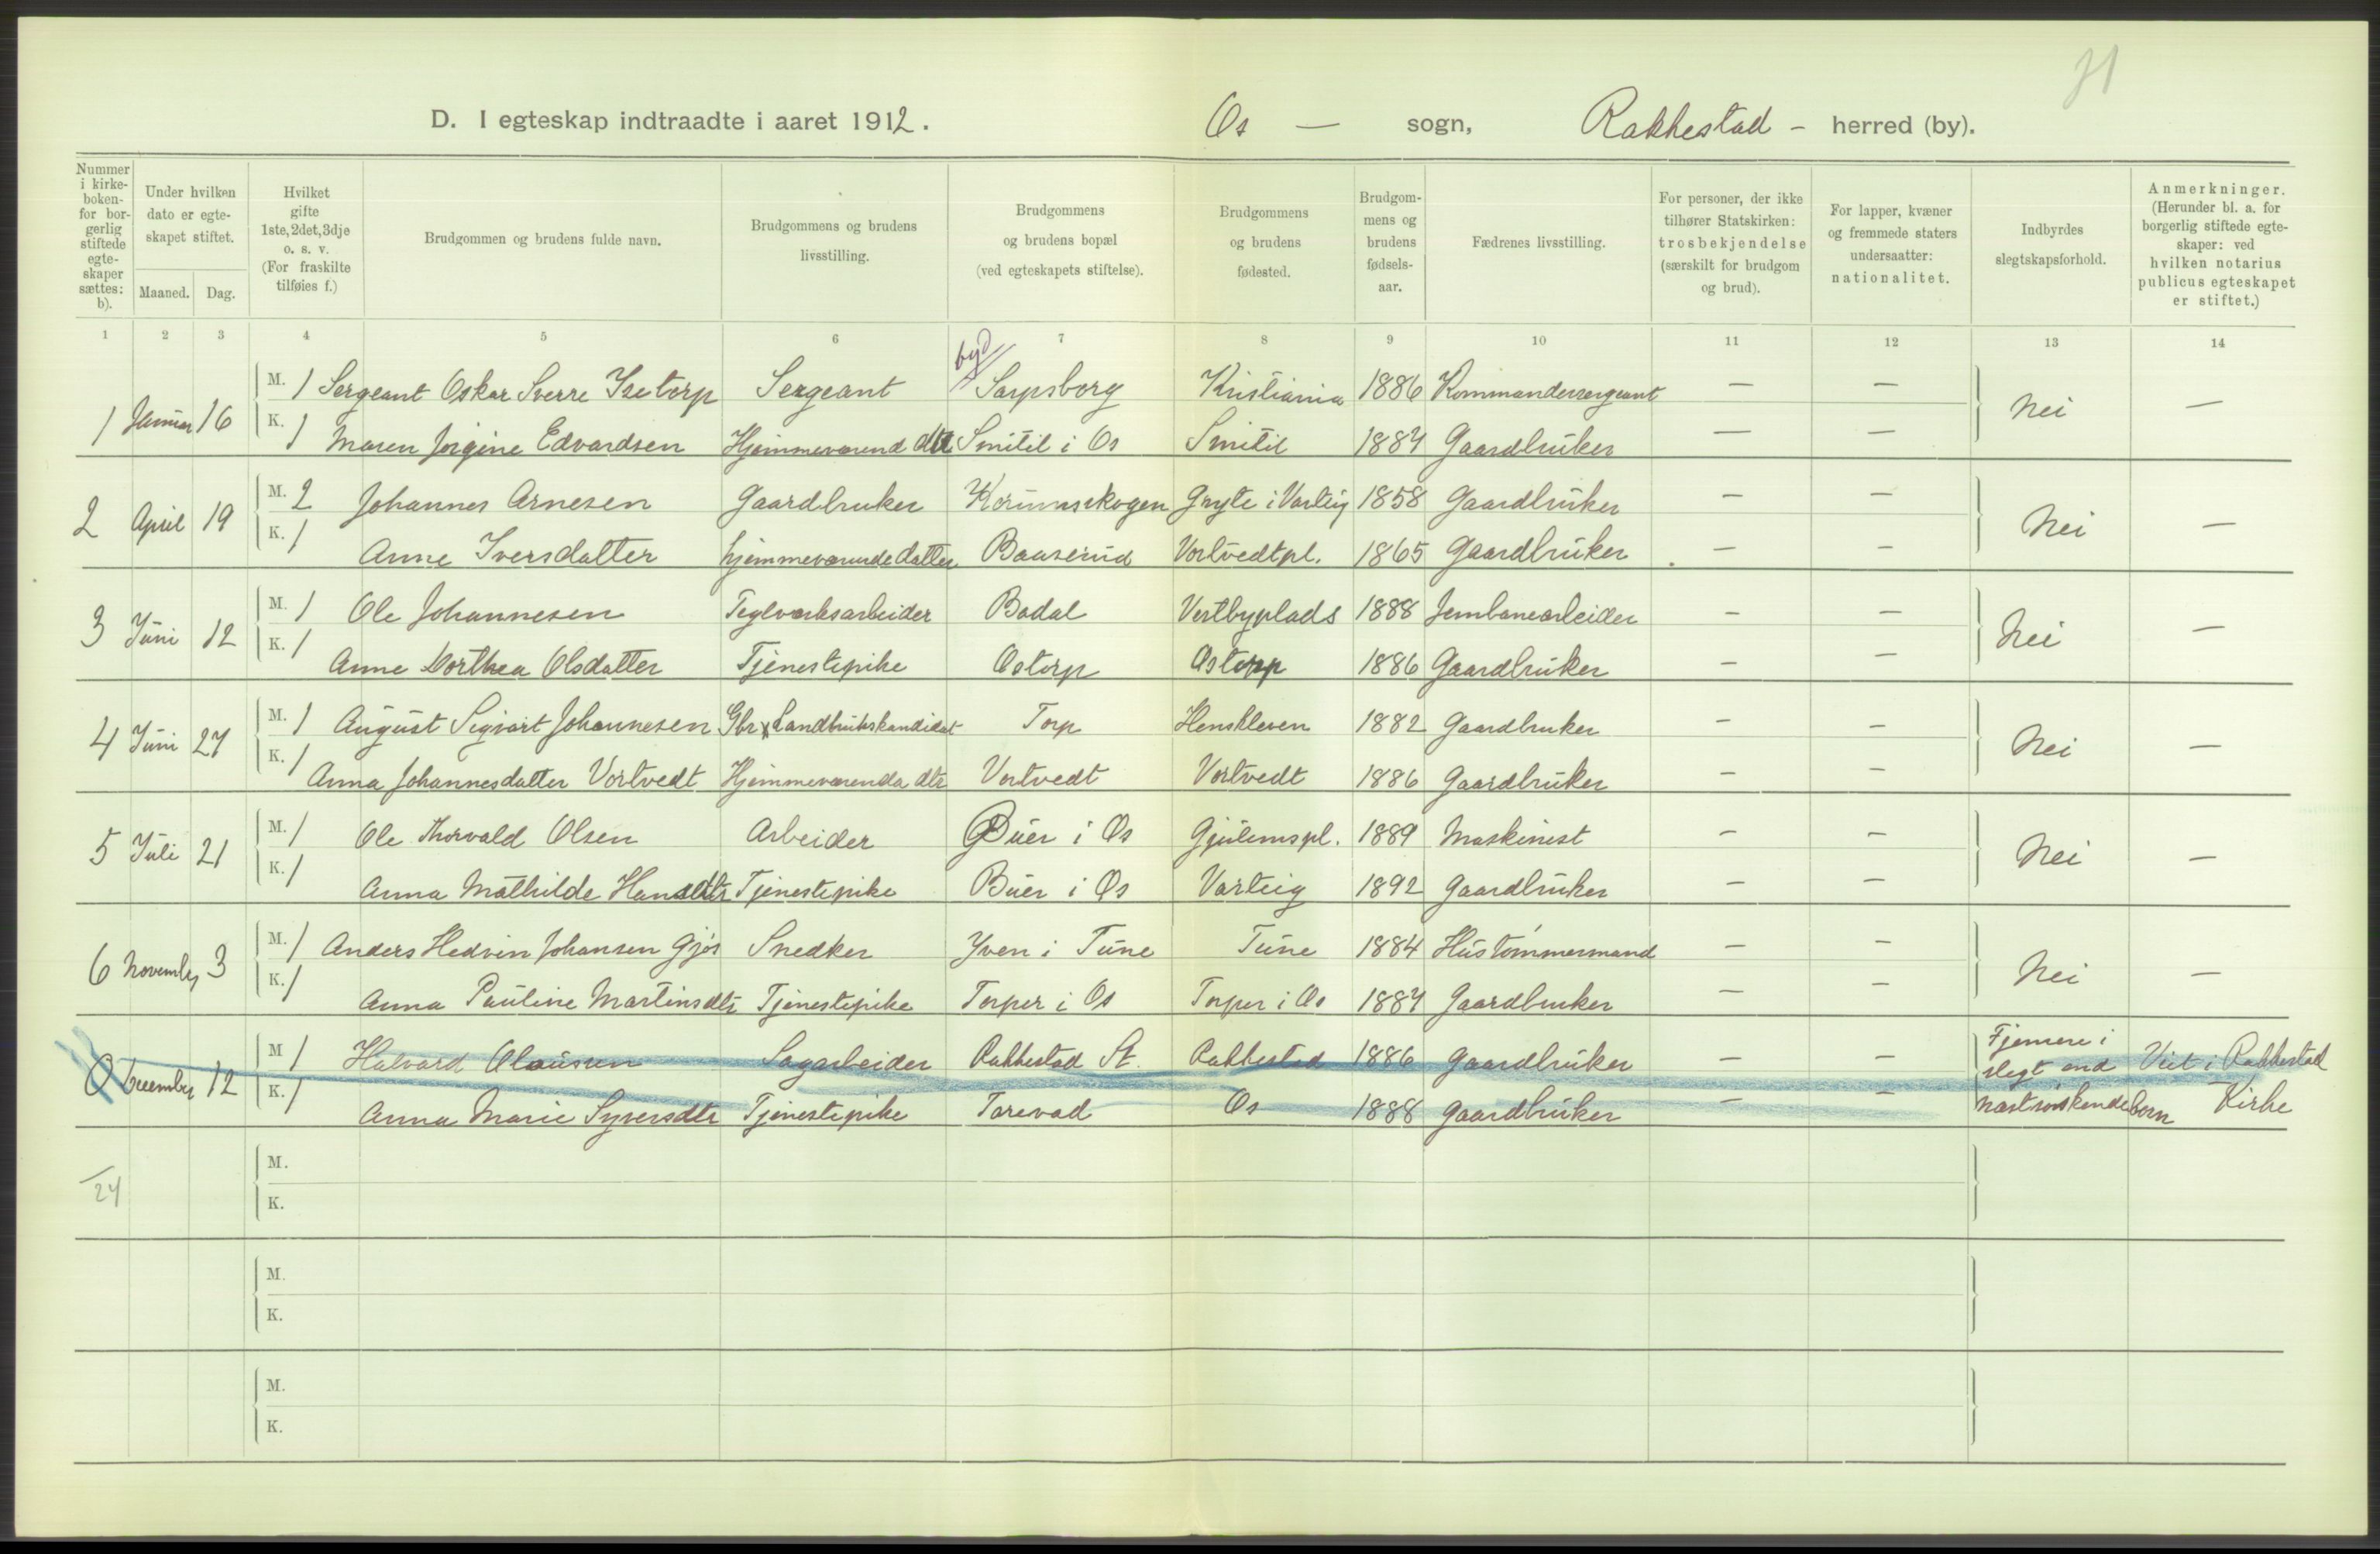 71
D. I egteskap indtraadte i aaret 1912. Os — sogn, Rakkestad - herred (by).
Nummer i kirke-boken- for bor-gerlig stiftede egte-skaper sættes: b).
Under hvilken dato er egte-skapet stiftet.
Maaned. Dag.
Hvilket gifte 1ste, 2det, 3dje o. s. v. (For fraskilte tilføies f.)
Brudgommen og brudens fulde navn.
Brudgommens og brudens livsstilling.
Brudgommens og brudens bopæl (ved egteskapets stiftelse).
Brudgommens og brudens fødested.
Brudgom-mens og brudens fødsels-aar.
Fædrenes livsstilling.
For personer, der ikke tilhører Statskirken: trosbekjendelse (særskilt for brudgom og brud).
For lapper, kvæner og fremmede staters undersaatter: nationalitet.
Indbyrdes slegtskapsforhold.
Anmerkninger. (Herunder bl. a. for borgerlig stiftede egte-skaper: ved hvilken notarius publicus egteskapet er stiftet.)
1 2 3 4 5 6 7 8 9 10 11 12 13 14
by
1 Januar 16 M. 1 Sergeant Oskar Sverre Isetorp Sergeant Sarpsborg Kristiania 1886 Kommandersergeant — — Nei —
K. 1 Maren Jørgine Edvardsen Hjemmeværend dtr Smitil i Os Smitil 1887 Gaardbruker — —
2 April 19 M. 2 Johannes Arnesen Gaardbruker Gryte i Varteig 1858 Gaardbruker — — Nei —
K. 1 Anne Iversdatter hjemmeværende datter Baaserud Vortvedtpl. 1865 Gaardbruker — —
3 Juni 12 M. 1 Ole Johannesen Teglverksarbeider Bodal Vestbyplads 1888 Jernbanearbeider — — Nei —
K. 1 Anne Dorthea Olsdatter Tjenestepike Ostorp Ostorp 1886 Gaardbruker — —
4 Juni 27 M. 1 August Sigvart Johannesen Gbr & Landbrukskandidat Torp Henskleven 1882 Gaardbruker — — Nei —
K. 1 Anna Johannesdatter Vortvedt Hjemmeværende dtr Vortvedt Vortvedt 1886 Gaardbruker — —
5 Juli 21 M. 1 Ole Thorvald Olsen Arbeider Buer i Os Gjulemspl. 1889 Maskinist — — Nei —
K. 1 Anna Mathilde Hansdtr Tjenestepike Buer i Os Varteig 1892 Gaardbruker — —
6 November 3 M. 1 Anders Hedvin Johansen Gjøs Snedker Yven i Tune Tune 1884 Hustømmermand — — Nei —
K. 1 Anna Pauline Martinsdtr Tjenestepike Torper i Os Torper i Os 1887 Gaardbruker — —
0 December 12 M 1 Halvard Olausen Sagarbeider Rakkestad St. Rakkestad 1886 Gaardbruker — — Fjernere i slegt end næstsøskendeborn Viet i Rakkestad Kirke
K. 1 Anna Marie Syversdtr Tjenestepike Torevad Os 1888 Gaardbruker — —
/24 M.
K.
M.
K.
M.
K.